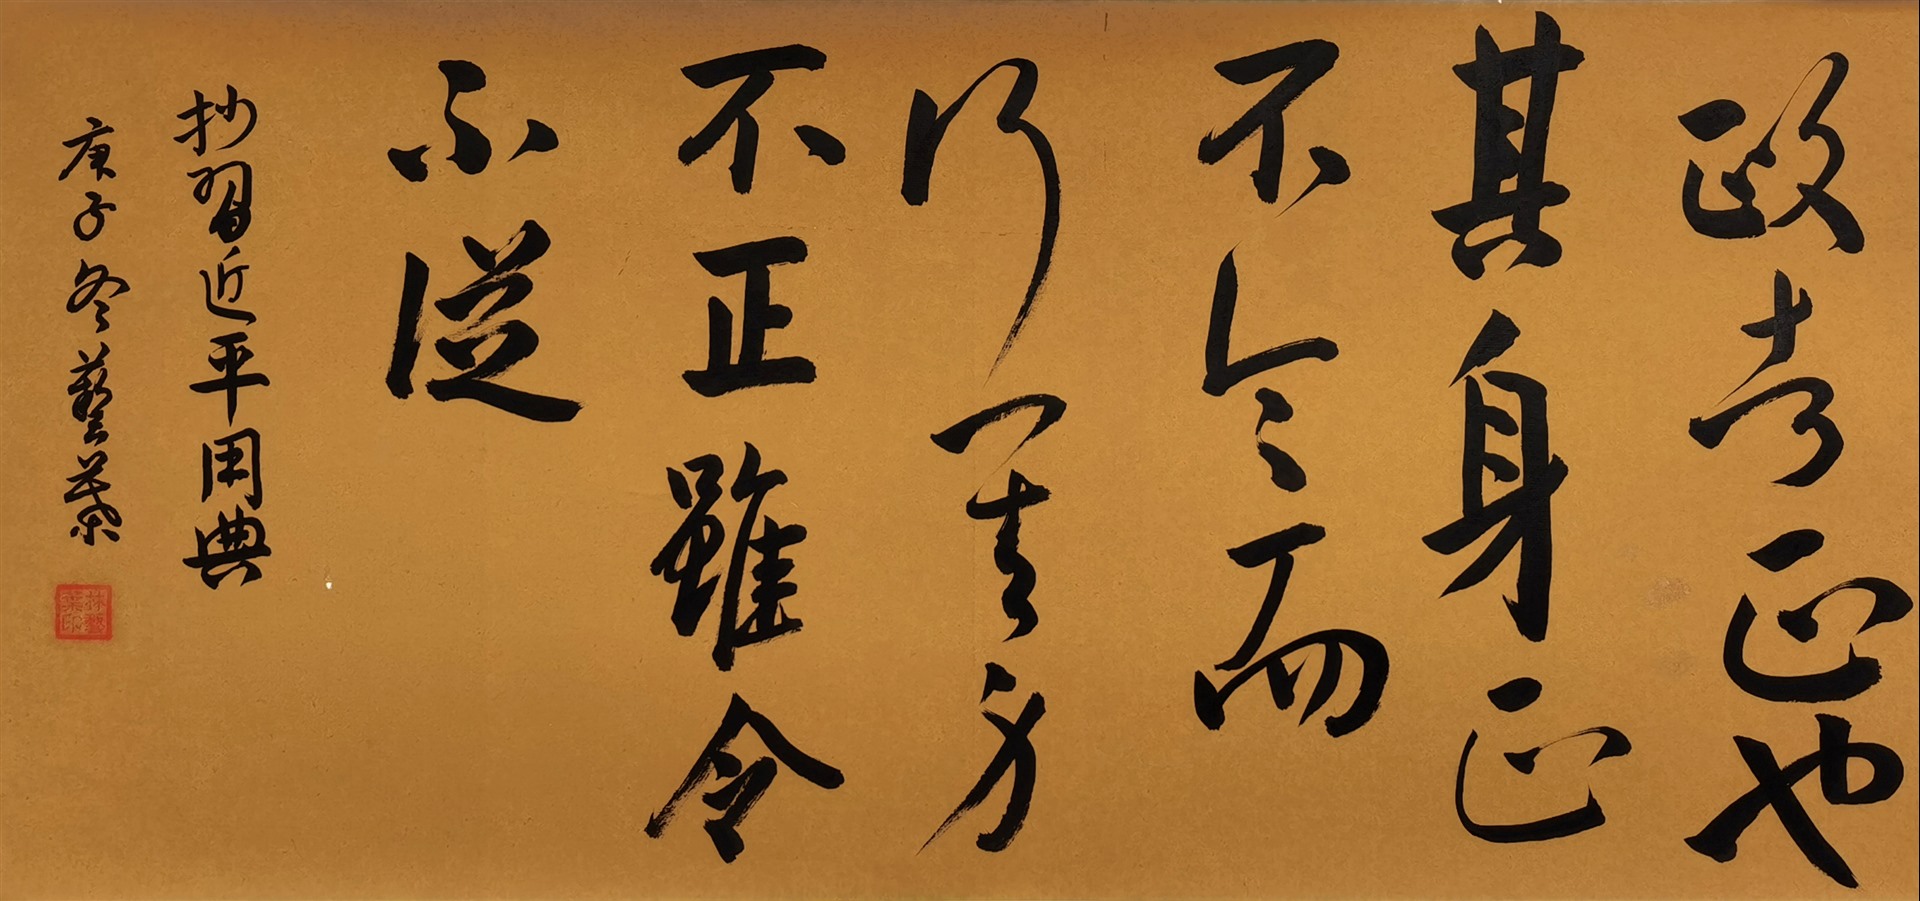 政者正也
其身正
不令而
行其身
不正雖令
不從
抄習近平用典
庚子冬藝葉
林藝葉印